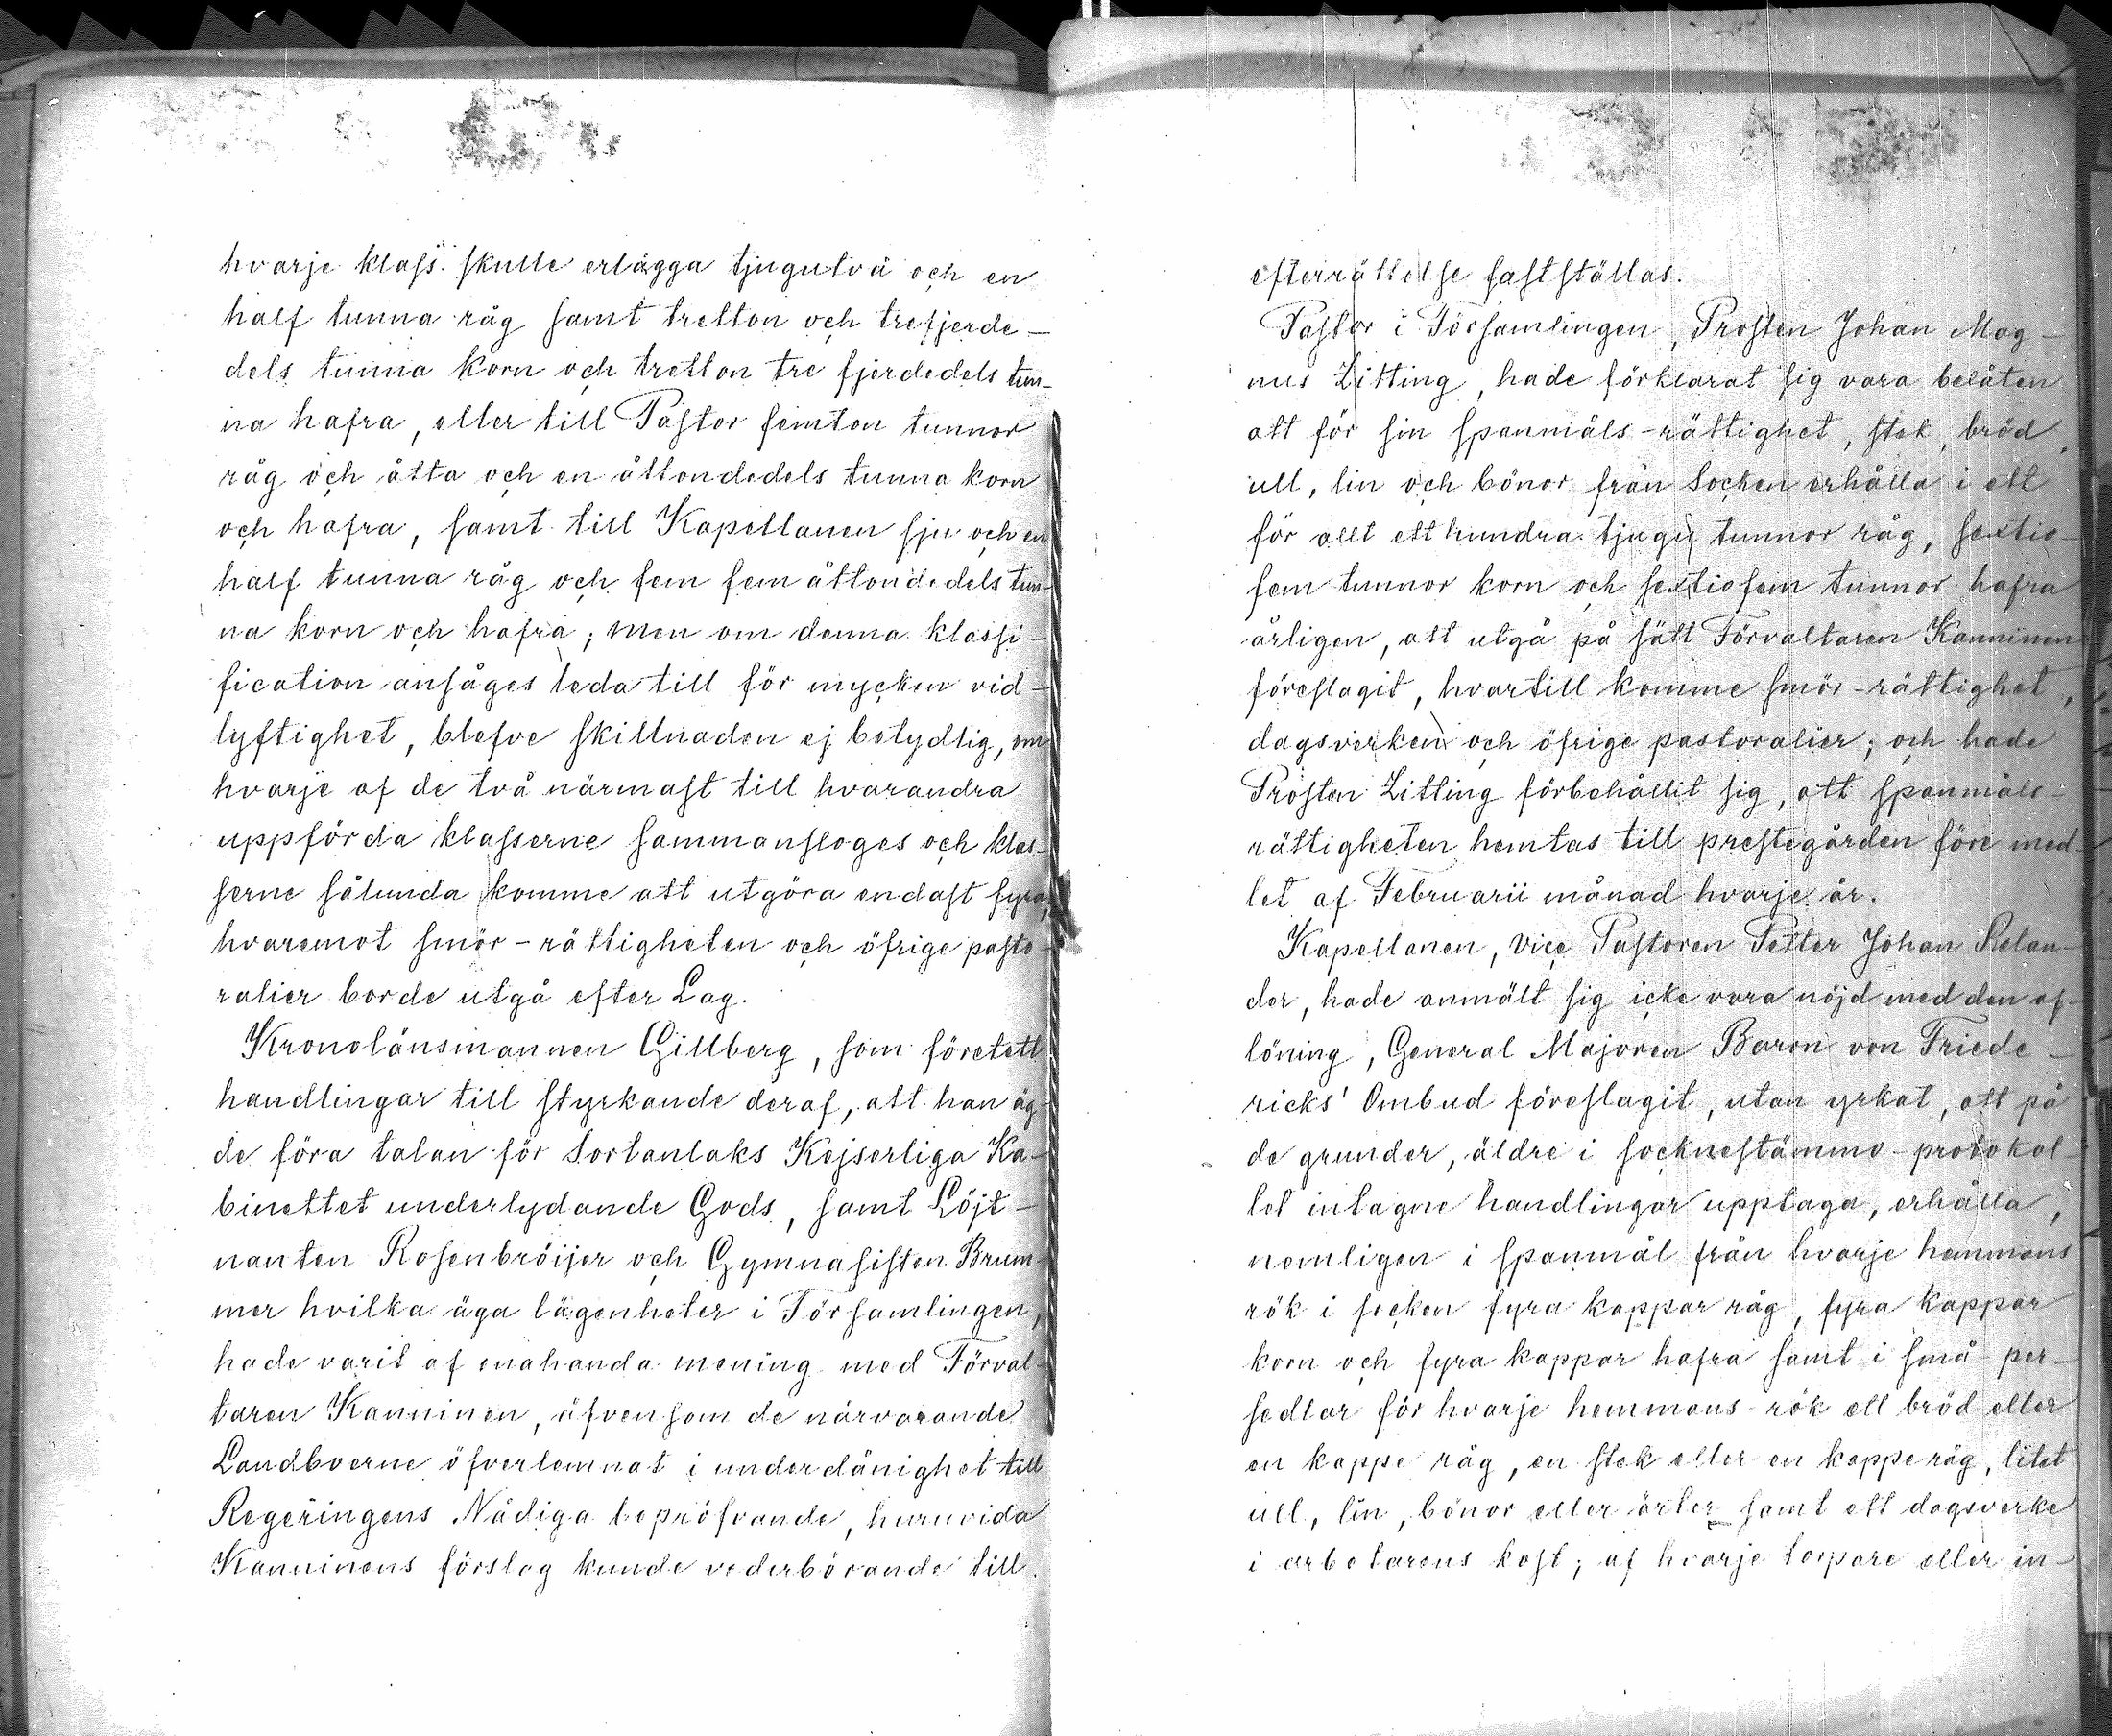 hvarje klass skulle erlägga tjugutvå och en
half tunna råg samt tretton och trefjerde-
dels tunna korn och tretton tre fjerdedels tun-
na hafra, eller till Pastor femton tunnor
råg och åtta och en åttondedels tunna korn
och hafra, samt till Kapellanen sju och en
half tunna råg och fem fem åttondedels tun-
na korn och hafra; men om denna klassi-
fication ansåges leda till för mycken vid-
lyftighet, blefve skillnaden ej betydlig, om
hvarje af de två närmast till hvarandra
uppförda klasserne sammansloges och klas-
serne sålunda komme att utgöra endast fyra,
hvaremot smör-rättigheten och öfrige pasto-
ralier borde utgå efter Lag.
Kronolänsmannen Gillberg, som företett
handlingar till styrkande deraf, att han äg-
de föra talan för Sortanlaks Kejserliga Ka-
binettet underlydande Gods, samt Löjt-
nanten Rosenbröijer och Gymnasisten Brum-
mer hvilka äga lägenheter i Församlingen,
hade varit af enahanda mening med Förval-
taren Kanninen, äfvensom de närvarande
Landboerne öfverlemnat i underdånighet till
Regeringens Nådiga bepröfvande, huruvida
Kanninens förslag kunde vederbörande till
efterrättelse fastställas.
Pastor i Församlingen, Prosten Johan Mag-
nus Zitting, hade förklarat sig vara belåten
att för sin spanmåls-rättighet, stek, bröd,
ull, lin och bönor från Socken erhålla i ett
för allt etthundra tjugu tunnor råg, sextio-
fem tunnor korn och sextiofem tunnor hafra
årligen, att utgå på sätt Förvaltaren Kanninen
föreslagit, hvartill komme smör-rättighet,
dagsverken och öfrige pastoralier; och hade
Prosten Zitting förbehållit sig, att spanmåls-
rättigheten hemtas till prestegården före med-
let af Februarii månad hvarje år.
Kapellanen, Vice Pastoren Petter Johan Relan-
der, hade anmält sig icke vara nöjd med den af-
löning, General Majoren Baron von Friede-
ricks' Ombud föreslagit, utan yrkat, att på
de grunder, äldre i sockнestämmo-protokol-
let intagne handlingar upptaga, erhålla,
nemligen i spanmål från hvarje hemmans
rök i socken fyra kappar råg, fyra kappar
korn och fyra kappar hafra samt i små-per-
sedlar för hvarje hemmans-rök ett bröd eller
en kappe råg, en stek eller en kappe råg, litet
ull, lin, bönor eller ärter samt ett dagsverke
i arbetarens kost; af hvarje torpare eller in-